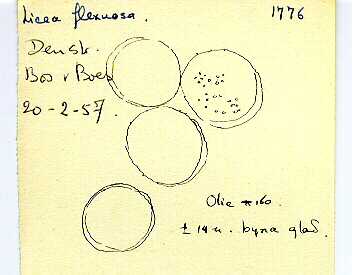 Licea flexuosa. 1776
Den str.
Bos v Boes
20-2-57.
Olie * 160.
± 14 u. byna glad.